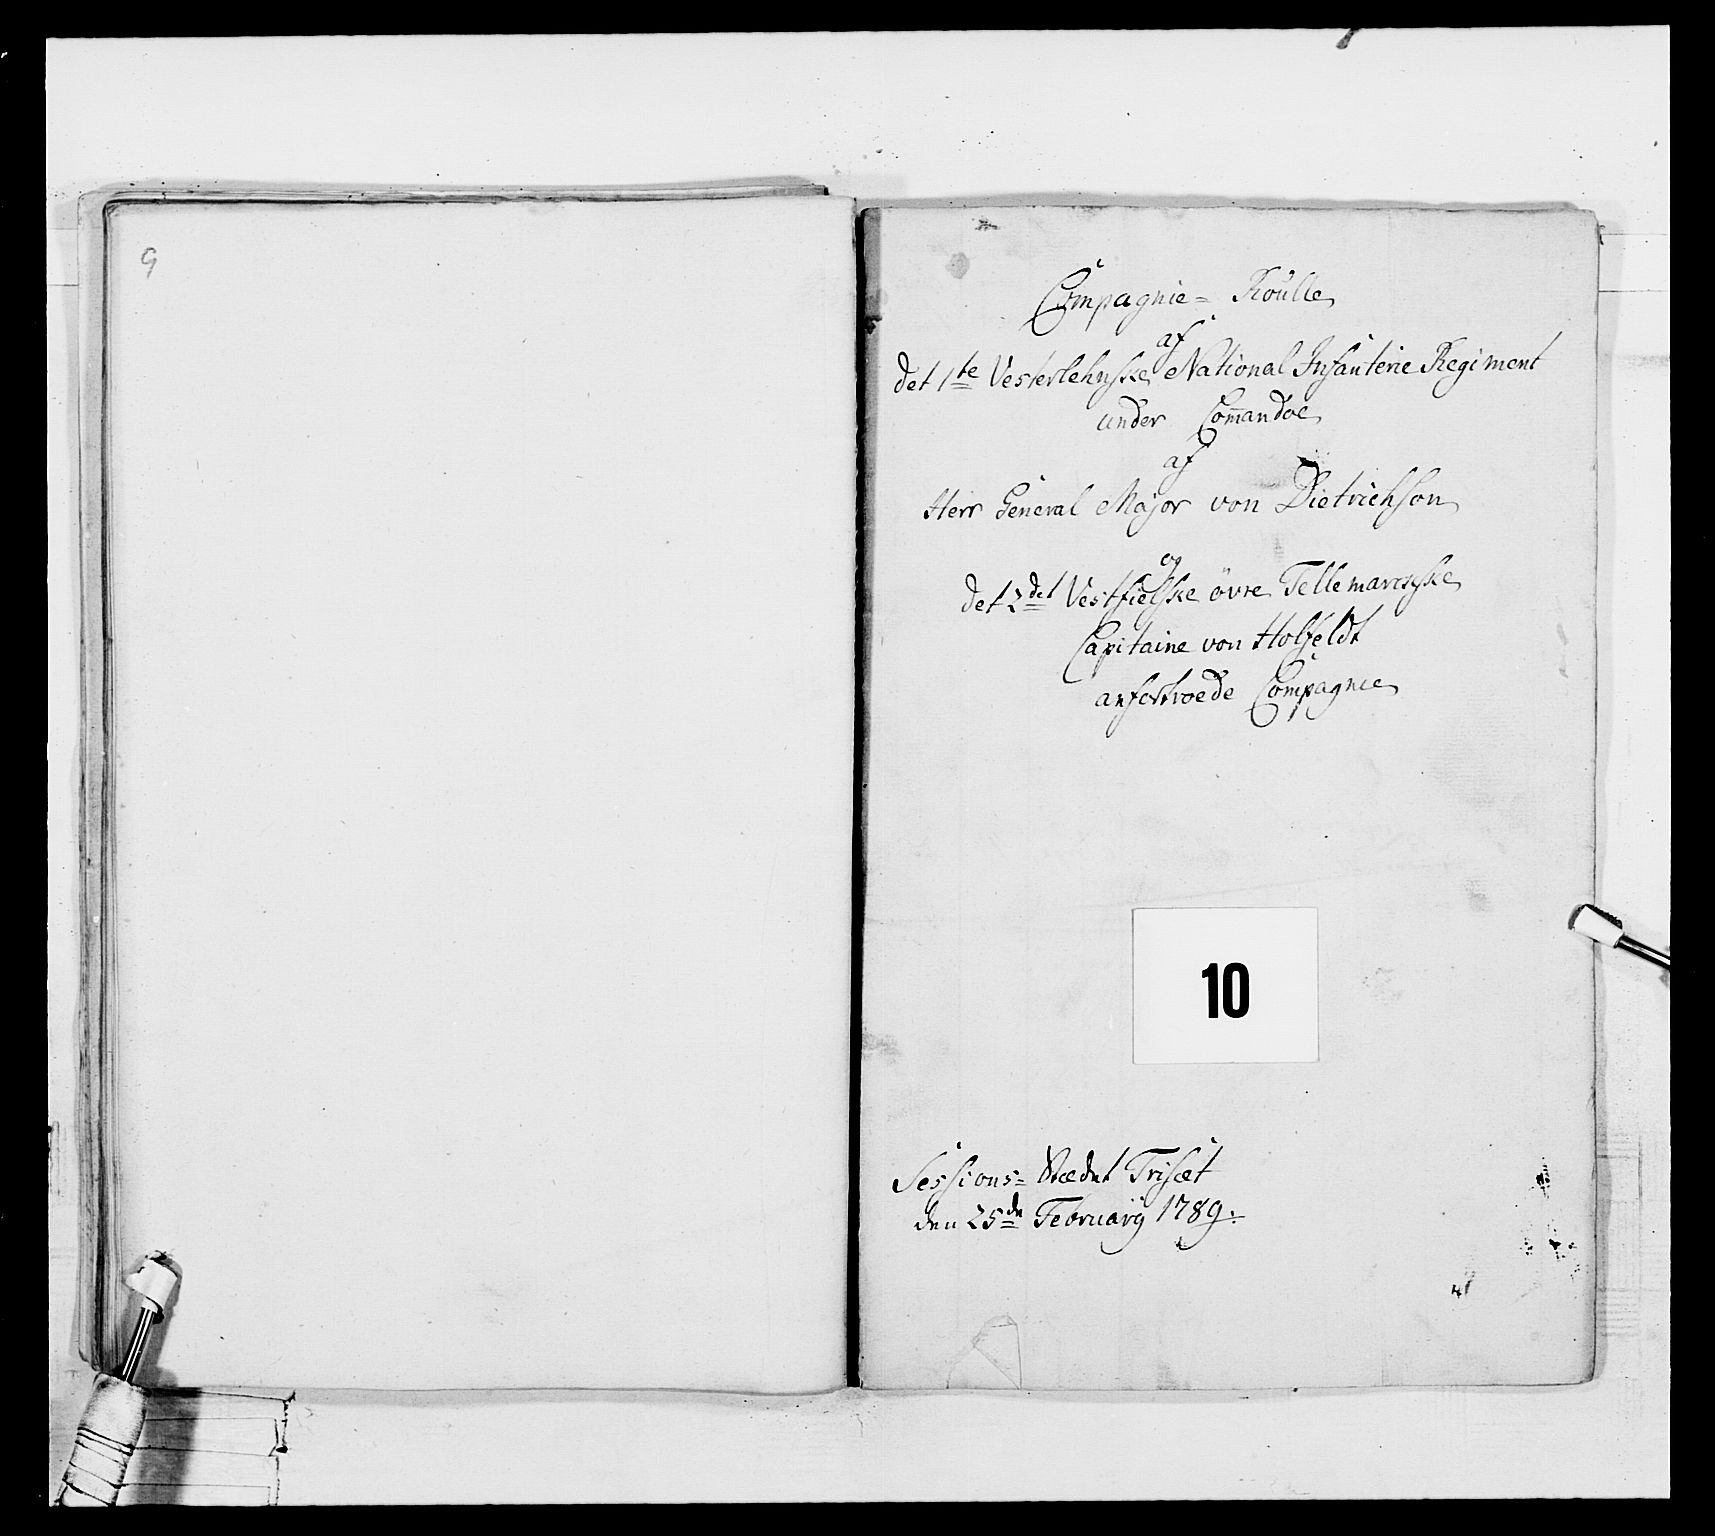 9
Compagnie = Roulle
af
det 1te Vesterlehnske National Infanterie Regiment
under Com̄andoe
af
Herr General Major von Dietrichson
og
det 2det Vestfielske övre Tellemarckske
Capitaine von Holfeldt
anfortroede Compagnie
10
Sessions= Stædet Trisæt
den 25de Februarÿ 1789.